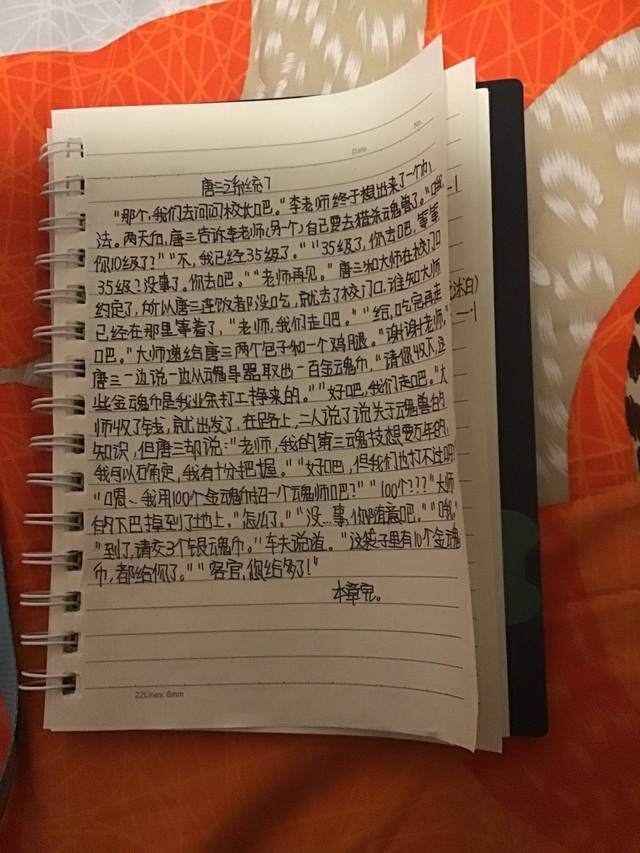 Date
No
唐三系统7
"那个,我们去问问校长吧。"李老师终于想出来了一个办
法。两天后,唐三告诉李老师(另一个)自己要去猎杀魂兽了。"哦,
你10级了?""不,我已经35级了。""35级了,你去吧,等等,
35级?没事了。你去吧。""老师再见。"唐三和大师在校门口
约定了,所以唐三连饭都没吃,就去了校门口,谁知大师
已经在那里等着了,"老师,我们走吧。""给,吃完再走
吧。"大师递给唐三两个包子和一个鸡腿。"谢谢老师,"
唐三一边说一边从魂导器取出一百金魂币,"请您收下,这
些金魂币是我业余打工挣来的。""好吧,我们走吧。"大
师收了钱,就出发了,在路上,二人说了说关于魂兽的
知识,但唐三却说:"老师,我的第三魂技想要万年的,
我可以确定,我有十分把握。""好吧,但我们也打不过吧"
"嗯…我用100个金魂币招一个魂师吧?""100个???"大师
的下巴掉到了地上。"怎么了。""没…事,你随意吧。""哦。"
"到了,请交3个银魂币。"车夫说道。"这袋子里有10个金魂
币,都给你了。""客官,您给多了!"
本章完。
22Lines. 8mm